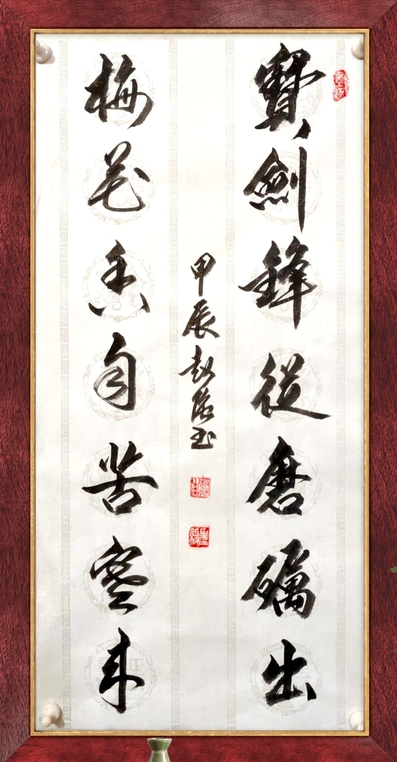 寶劍鋒從磨礪出
梅花香自苦寒来
甲辰赵玉